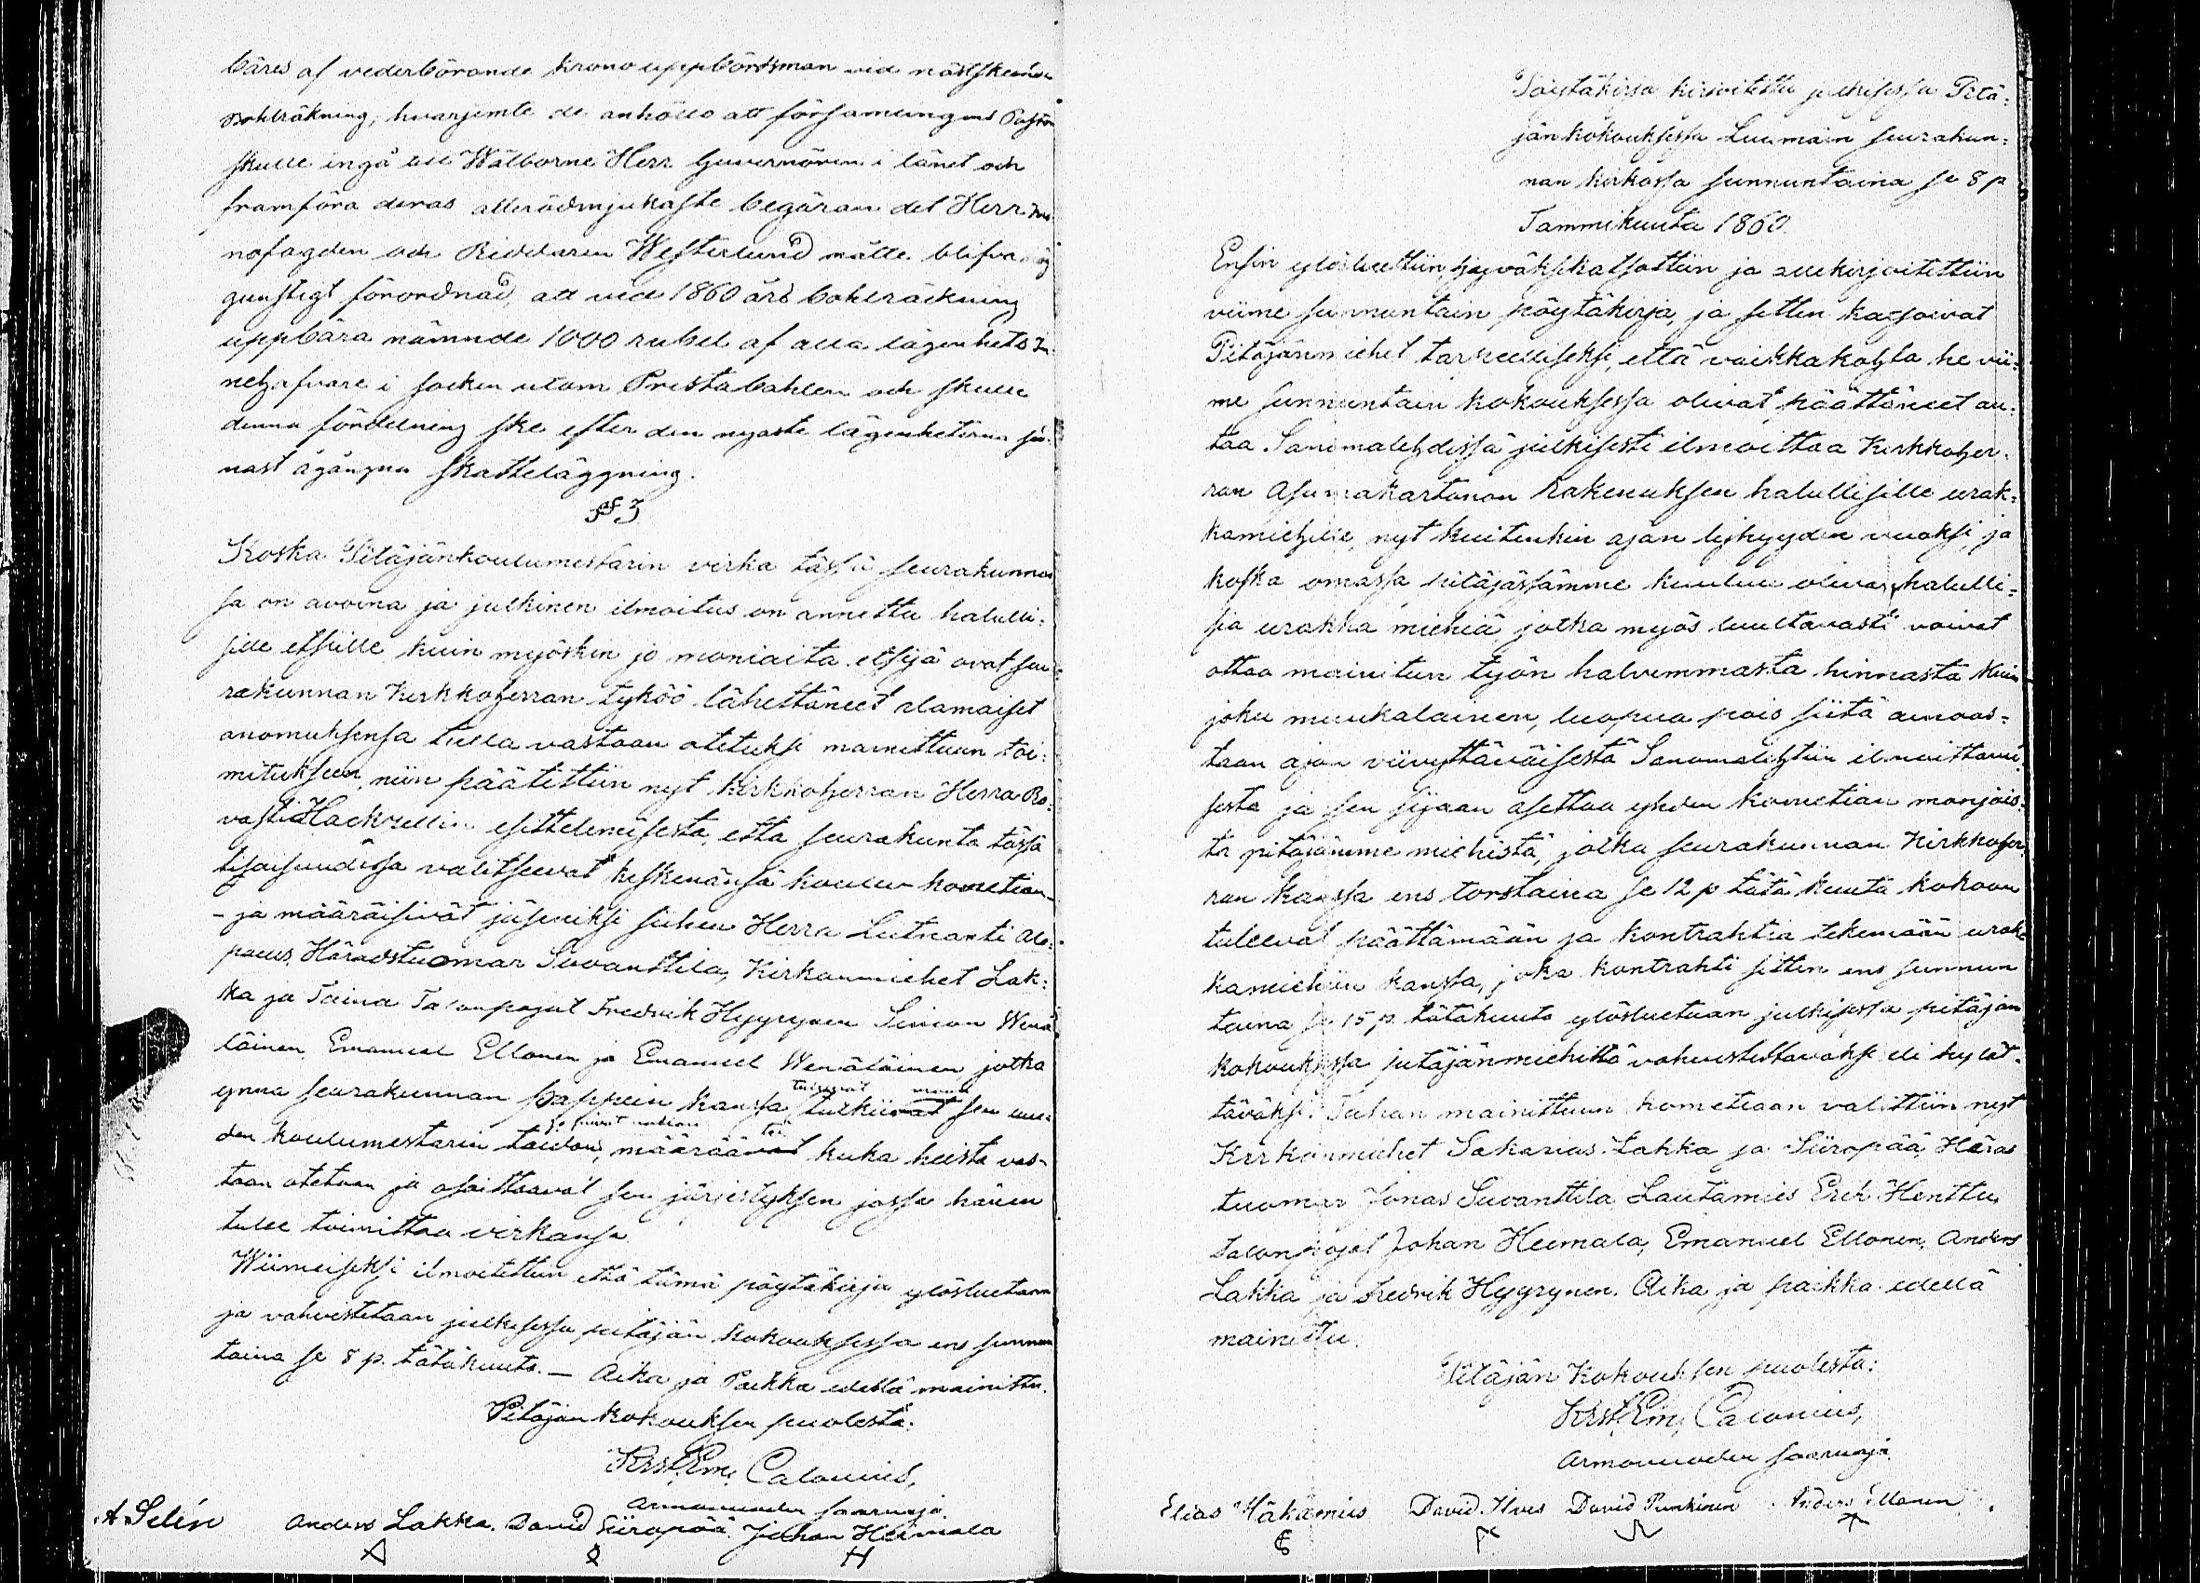 bäres af vederbörande Kronouppbördsman vid nästskeende
bohlräkning, hvarjemte de anhöllo att församlingens Pastor
skulle ingå till Wälborne Herr Guvernören i länet och
framföra deras allerödmjukaste begäran det Herr Kro-
nofogden och Riddaren Westerlund måtte blifva
gunstigt förordnad, att vid 1860 års bohlräkning
uppbära nämnde 1000 rubel af alla lägenhets In-
nehafvare i socken utom Prestabohlen och skulle
denna fördelning ske efter den nyaste lägenheterna se-
nast ågångna skatteläggning.
§ 3
Koska Pitäjänkoulumestarin virka tässä seurakunnas
sa on avoina ja julkinen ilmoitus on annettu halulli-
sille etsiille kuin myöskin jo moniaita etsijä ovat seu-
rakunnan Kirkkoherran tykö lähettäneet alamaiset
anomuksensa tulla vastaan otetuksi mainittuun toi-
mitukseen, niin päätettiin nyt Kirkkoherran Herra Ro-
vasti Hackzellin esittelemisestä, että seurakunta tässä
tilaisuudessa valitseevat keskenänsä koulu kometian
– ja määräisivät jäseniksi siihen Herra Luitnanti Alo-
paeus, Häradstuomar Suvanttila, Kirkonmiehet Lak-
ka ja Taina Talonpojat Fredrik Hyyrynen Simon Wenä
läinen Emanuel Ellonen ja Emanuel Wenäläinen jotka
ynnä seurakunnan pappein kanssa tutkiivat sen uu-
den koulumestarin taidon, määräävät kuka heistä vas-
taan otetaan ja asaittaavat sen järjestyksen jossa hänen
tulee toimittaa virkansa.
Wiimeiseksi ilmoitettiin että tämä pöytäkirja ylösluetaan
ja vahvistetaan julkisessa pitäjän kokouksessa ens sunnun
taina se 8 p. tätäkuuta. — Aika ja Paikka edellä mainittu.
Pitäjän kokouksen puolesta:
Krst. Em. Calonius,
Armovuoden saarnaja.
A Selén Anders Lakka. David Siiropää. Johan Heimala
Pöytäkirja kirjoitettu julkisessa Pitä-
jänkokouksessa Luumäen seurakun-
nan kirkossa sunnuntaina se 8 p
Tammikuuta 1860.
Ensin ylösluettiin hyväksikatsottiin ja allekirjoitettiin
viime sunnuntain pöytäkirja, ja sitten katsoivat
Pitäjänmiehet tarpeelliseksi, että vaikkakohta he vii-
me sunnuntain kokouksessa olivat päättäneet an-
taa Sanomalehdissä julkisesti ilmoittaa Kirkkoher-
ran Asumakartanon Rakennuksen halullisille urak-
kamiehille, nyt kuitenkin ajan lyhyyden vuoksi, ja
koska omassa pitäjässämme kuuluu olevan halulli-
sia urakka miehiä jotka myös luultavasti voivat
ottaa mainitun työn halvemmasta hinnasta kuin
joku muukalainen, luopua pois siitä ainoas-
taan ajan viivyttäväisestä Sanomalehtiin ilmoittami-
sesta ja sen sijaan asettaa yhden kometian monjois-
ta pitäjämme miehistä, jotka seurakunnan Kirkkoher-
ran kanssa ens torstaina se 12 p tätä kuuta kokoon
tuleevat päättämään ja kontrahtia tekemään urak-
kamiehiin kanssa, joka kontrahti sitten ens sunnun
taina se 15 p. tätäkuuta ylösluetaan julkisessa pitäjän
kokouksessa pitäjänmiehiltä vahvistettavaksi eli hylät-
täväksi. Tähän mainittuun kometiaan valittiin nyt
Kirkonmiehet Sakarias Lakka ja Siiropää, Häras
tuomar Jonas Suvanttila Lautamies Erik Henttu,
talonpojat Johan Heimala, Emanuel Ellonen, Anders
Lakka ja Fredrik Hyyrynen. Aika ja paikka edellä
mainittu.
Pitäjän Kokouksen puolesta:
Krst. Em. Calonius,
Armovuoden saarnaja.
Elias Häkämies David Ilves David Punkinen Anders Ellonen